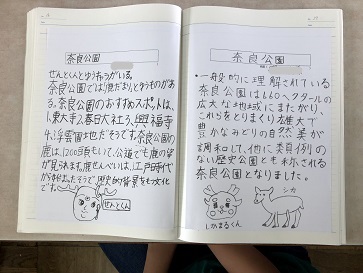 奈良公園
せんとくんとゆう木もがいる。
奈良公園では鹿だまりとゆうものがあ
る。奈良公園のおすすめスポットは、
1.東大寺2.春日大社3.興福寺
4.浮雲園地だそうです。奈良公園の
鹿は、1200頭もいて、公道でも鹿の姿
が見られます。鹿せんべいは、江戸時代
からそうで歴史的背景をもつ文化
です。
せんとくん
奈良公園
・一般的に理解されている
奈良公園は660ヘクタールの
広大な地域にまたがり、
これらをとりまくり雄大で
豊かなみどりの自然美が
調和して、他に類例の
ない歴史公園とも称される
奈良公園となりました。
しかまるくん
シカ